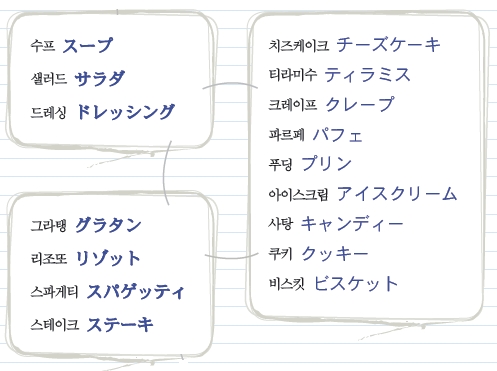 수프 スープ
샐러드 サラダ
드레싱 ドレッシング
그라탱 グラタン
리조또 リゾット
스파게티 スパゲッティ
스테이크 ステーキ
치즈케이크 チーズケーキ
티라미수 ティラミス
크레이프 クレープ
파르페 パフェ
푸딩 プリン
아이스크림 アイスクリーム
사탕 キャンディー
쿠키 クッキー
비스킷 ビスケット